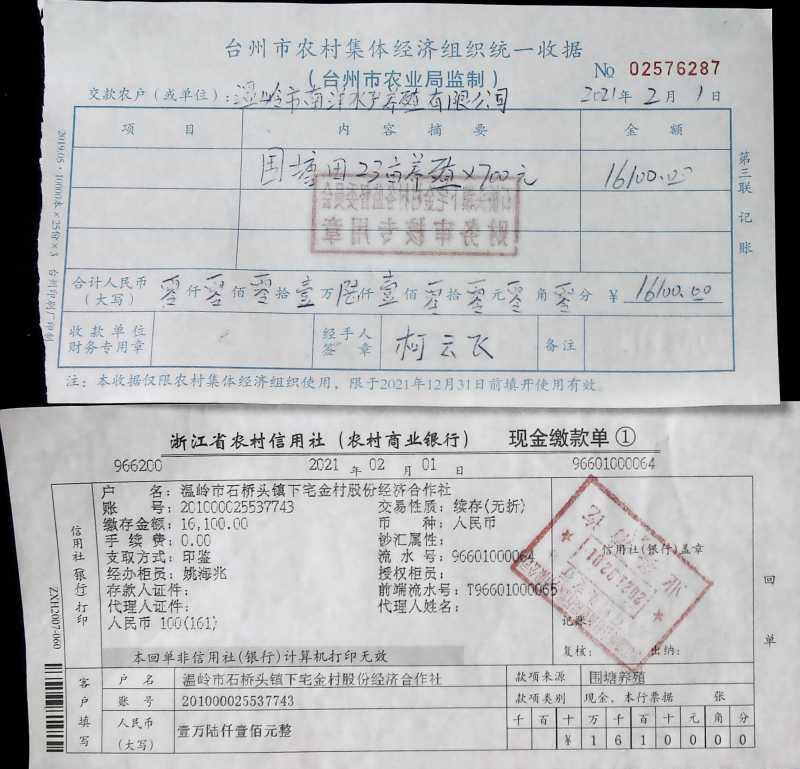 台州市农村集体经济组织统一收据
(台州市农业局监制)
No 02576287
交款农户(或单位):温岭市南洋水产养殖有限公司 2021年2月1日
项目 内容摘要 金额
围塘田23亩养殖×700元 16100.00
财务审核专用章
合计人民币(大写) 零仟零佰零拾壹万陆仟壹佰零拾零元零角零分 ¥ 16100.00
收款单位财务专用章 经手人签章 柯云飞 备注
注:本收据仅限农村集体经济组织使用,限于2021年12月31日前填开使用有效。
第三联 记账
2019.05·10000本×25份×3 台州印刷厂印制
浙江省农村信用社(农村商业银行) 现金缴款单①
966200 2021年02月01日 96601000064
户名:温岭市石桥头镇下宅金村股份经济合作社
账号:201000025537743 交易性质:续存(无折)
缴存金额:16,100.00 币种:人民币
手续费:0.00 钞汇属性:
支取方式:印鉴 流水号:96601000064
经办柜员:姚海兆 授权柜员:
存款人证件: 前端流水号:T96601000065
代理人证件: 代理人姓名:
人民币 100(161)
本回单非信用社(银行)计算机打印无效
信用社(银行)打印
信用社(银行)盖章
2021.02.01
记账:
复核: 出纳:
回单
ZXH2007-060
客户填写
户名 温岭市石桥头镇下宅金村股份经济合作社 款项来源 围塘养殖
账号 201000025537743 款项类别 现金、本行票据 张
人民币(大写) 壹万陆仟壹佰元整 千百十万千百十元角分
¥1610000